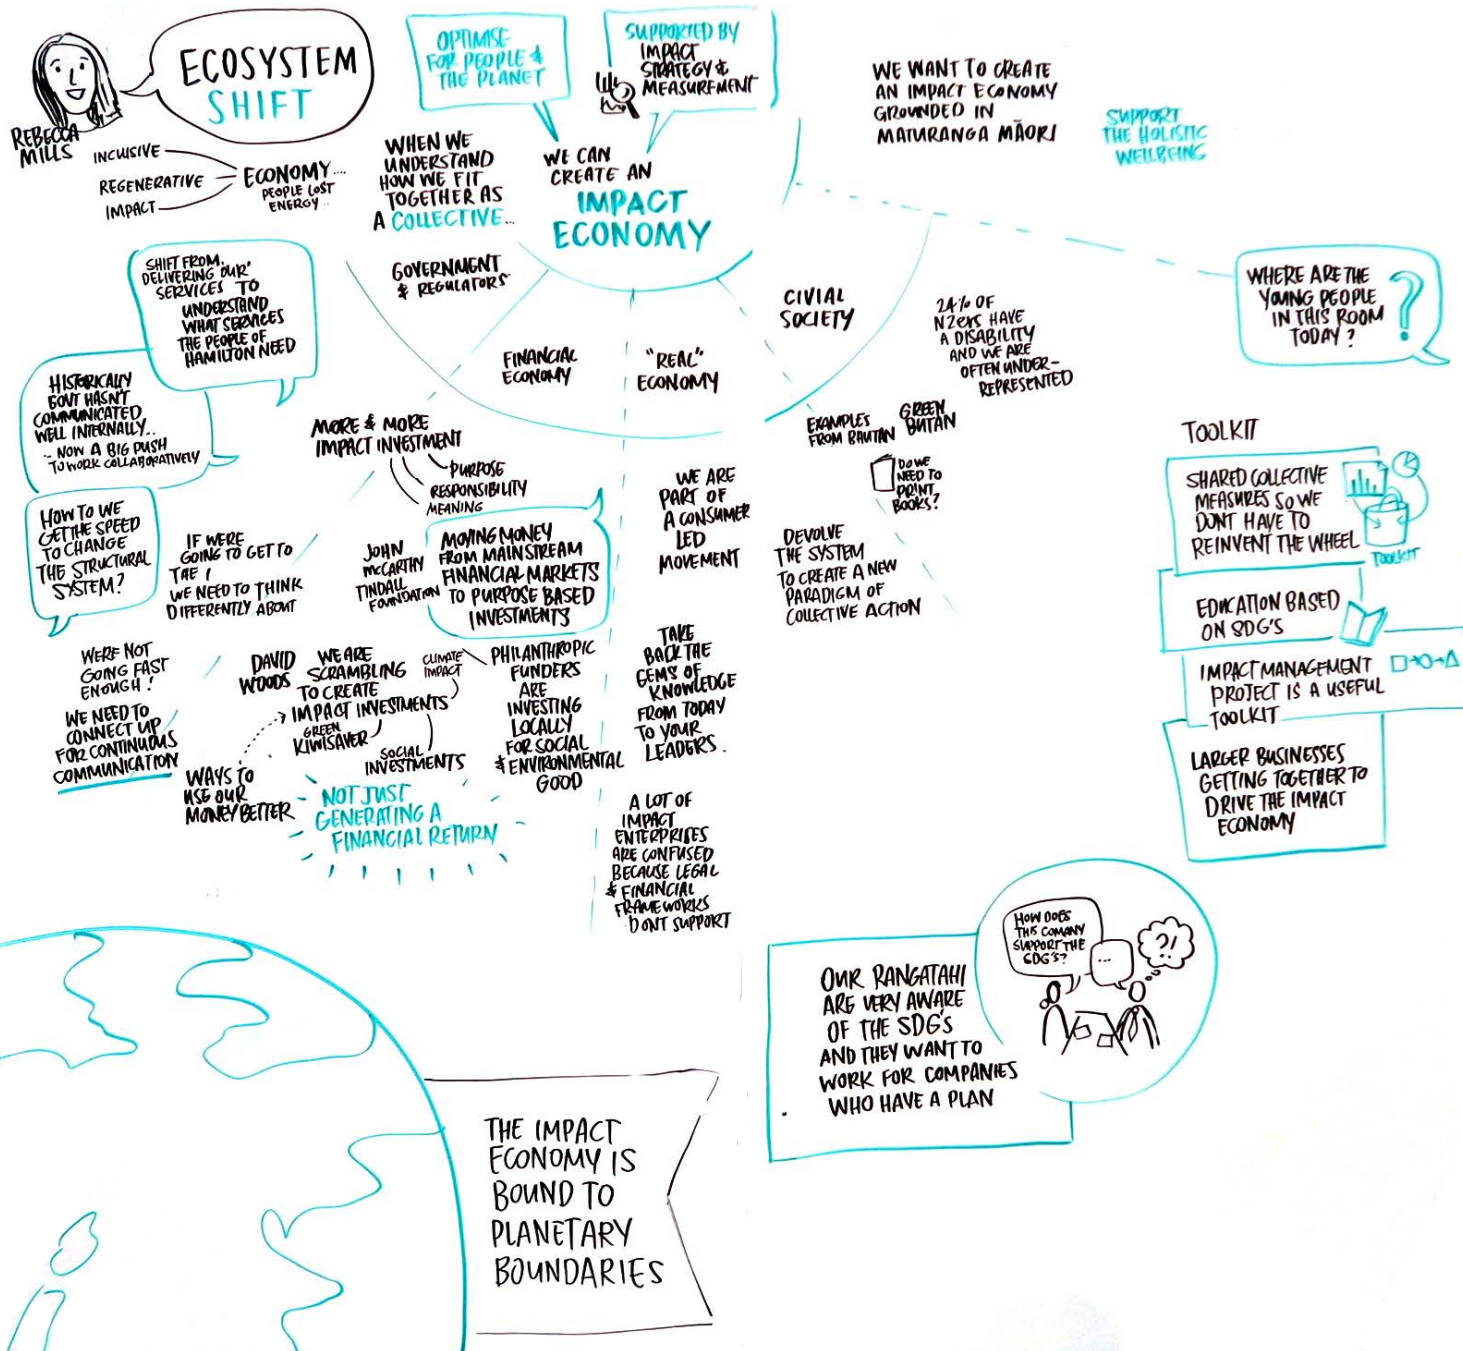 REBECCA
MILLS
ECOSYSTEM
SHIFT
INCLUSIVE
REGENERATIVE
IMPACT
ECONOMY....
PEOPLE LOST
ENERGY..
OPTIMISE
FOR PEOPLE &
THE PLANET
SUPPORTED BY
IMPACT
STRATEGY &
MEASUREMENT
WHEN WE
UNDERSTAND
HOW WE FIT
TOGETHER AS
A COLLECTIVE...
WE CAN
CREATE AN
IMPACT
ECONOMY
WE WANT TO CREATE
AN IMPACT ECONOMY
GROUNDED IN
MATURANGA MĀORI
SUPPORT
THE HOLISTIC
WELLBEING
GOVERNMENT
& REGULATORS
FINANCIAL
ECONOMY
"REAL"
ECONOMY
CIVIAL
SOCIETY
SHIFT FROM
DELIVERING 'OUR'
SERVICES TO
UNDERSTAND
WHAT SERVICES
THE PEOPLE OF
HAMILTON NEED
HISTORICALLY
GOVT HASN'T
COMMUNICATED
WELL INTERNALLY..
- NOW A BIG PUSH
TO WORK COLLABORATIVELY
HOW TO WE
GET THE SPEED
TO CHANGE
THE STRUCTURAL
SYSTEM?
IF WERE
GOING TO GET TO
THE 1
WE NEED TO THINK
DIFFERENTLY ABOUT
WERE NOT
GOING FAST
ENOUGH!
WE NEED TO
CONNECT UP
FOR CONTINUOUS
COMMUNICATION
MORE & MORE
IMPACT INVESTMENT
PURPOSE
RESPONSIBILITY
MEANING
JOHN
McCARTHY
TINDALL
FOUNDATION
MOVING MONEY
FROM MAINSTREAM
FINANCIAL MARKETS
TO PURPOSE BASED
INVESTMENTS
DAVID
WOODS
WE ARE
SCRAMBLING
TO CREATE
IMPACT INVESTMENTS
CLIMATE
IMPACT
GREEN
KIWISAVER
SOCIAL
INVESTMENTS
WAYS TO
USE OUR
MONEY BETTER
NOT JUST
GENERATING A
FINANCIAL RETURN
PHILANTHROPIC
FUNDERS
ARE
INVESTING
LOCALLY
FOR SOCIAL
& ENVIRONMENTAL
GOOD
WE ARE
PART OF
A CONSUMER
LED
MOVEMENT
TAKE
BACK THE
GEMS OF
KNOWLEDGE
FROM TODAY
TO YOUR
LEADERS.
A LOT OF
IMPACT
ENTERPRISES
ARE CONFUSED
BECAUSE LEGAL
& FINANCIAL
FRAMEWORKS
DONT SUPPORT
24% OF
NZers HAVE
A DISABILITY
AND WE ARE
OFTEN UNDER-
REPRESENTED
EXAMPLES
FROM BAUTAN
GREEN
BUTAN
DO WE
NEED TO
PRINT
BOOKS?
DEVOLVE
THE SYSTEM
TO CREATE A NEW
PARADIGM OF
COLLECTIVE ACTION
WHERE ARE THE
YOUNG PEOPLE
IN THIS ROOM
TODAY?
?
TOOLKIT
SHARED COLLECTIVE
MEASURES SO WE
DONT HAVE TO
REINVENT THE WHEEL
TOOLKIT
EDUCATION BASED
ON SDG'S
IMPACT MANAGEMENT
PROJECT IS A USEFUL
TOOLKIT
LARGER BUSINESSES
GETTING TOGETHER TO
DRIVE THE IMPACT
ECONOMY
OUR RANGATAHI
ARE VERY AWARE
OF THE SDG'S
AND THEY WANT TO
WORK FOR COMPANIES
WHO HAVE A PLAN
HOW DOES
THIS COMANY
SUPPORT THE
SDG'S?
...
?!
THE IMPACT
ECONOMY IS
BOUND TO
PLANETARY
BOUNDARIES